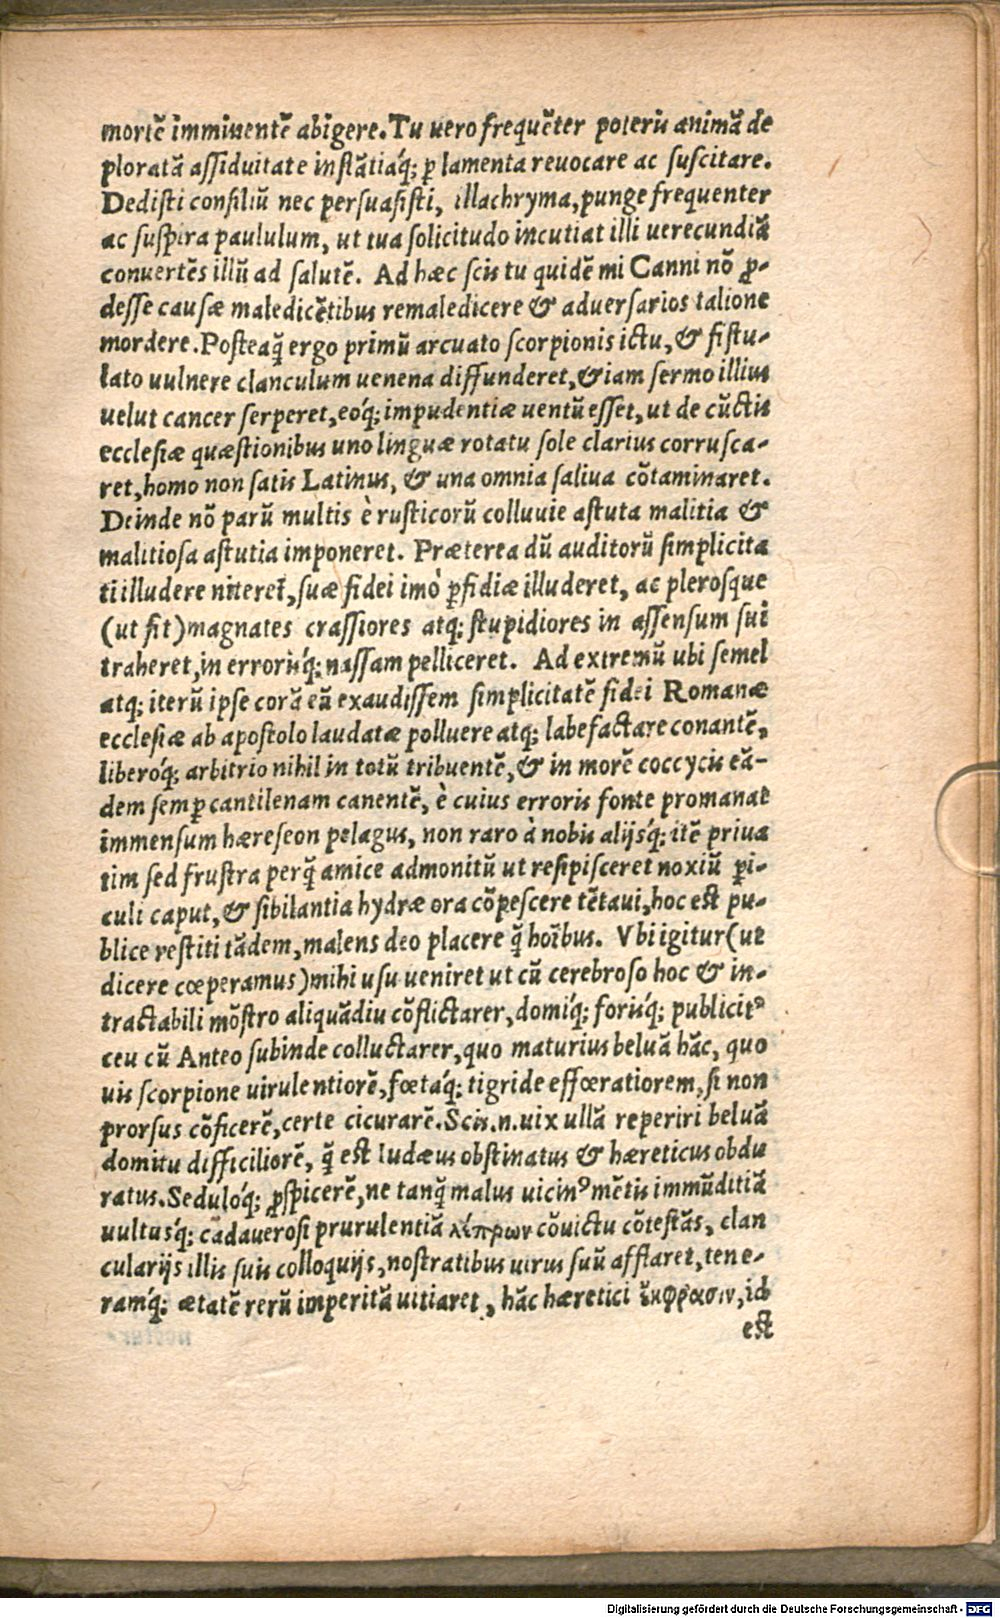 mortẽ imminentẽ abigere. Tu uero frequẽter poteris animã de
ploratã assiduitate instãtiaq́; p̱ lamenta reuocare ac suscitare.
Dedisti consiliũ nec persuasisti, illachryma, punge frequenter
ac suspira paululum, ut tua solicitudo incutiat illi uerecundiã
conuertẽs illũ ad salutẽ. Ad hæc scis tu quidẽ mi Canni nõ ꝓ-
desse causæ maledicẽtibus remaledicere & aduersarios talione
mordere. Posteaq̃ ergo primũ arcuato scorpionis ictu, & fistu-
lato uulnere clanculum uenena diffunderet, & iam sermo illius
uelut cancer serperet, eoq́; impudentiæ uentũ esset, ut de cũctis
ecclesiæ quæstionibus uno linguæ rotatu sole clarius corrusca-
ret, homo non satis Latinus, & una omnia saliua cõtaminaret.
Deinde nõ parũ multis è rusticorũ colluuie astuta malitia &
malitiosa astutia imponeret. Præterea dũ auditorũ simplicita
ti illudere niteret̃, suæ fidei imò p̱fidiæ illuderet, ac plerosque
(ut fit) magnates crassiores atq; stupidiores in assensum sui
traheret, in errorisq́; nassam pelliceret. Ad extremũ ubi semel
atq; iterũ ipse corã eũ exaudissem simplicitatẽ fidei Romanæ
ecclesiæ ab apostolo laudatæ polluere atq; labefactare conantẽ,
liberoq́; arbitrio nihil in totũ tribuentẽ, & in morẽ coccycis eã-
dem semp̱ cantilenam canentẽ, è cuius erroris fonte promanat
immensum hæreseon pelagus, non raro à nobis alijsq́; itẽ priua
tim sed frustra perq̃ amice admonitũ ut resipisceret noxiũ p̱i-
culi caput, & sibilantia hydræ ora cõpescere tẽtaui, hoc est pu-
blice restiti tãdem, malens deo placere q̃ hoĩbus. Vbi igitur (ut
dicere cœperamus) mihi usu ueniret ut cũ cerebroso hoc & in-
tractabili mõstro aliquãdiu cõflictarer, domiq́; forisq́; publicitꝰ
ceu cũ Anteo subinde colluctarer, quo maturius beluã hãc, quo
uis scorpione uirulentiorẽ, fœtaq́; tigride efforatiorem, si non
prorsus cõficerẽ, certe cicurarẽ. Scis .n. uix ullã reperiri beluã
domitu difficiliorẽ, q̃ est Iudæus obstinatus & hæreticus obdu
ratus. Seduloq́; ꝓspicerẽ, ne tanq̃ malus uicinꝰ mẽtis immũditiã
uultusq́; cadauerosi prurulentiã λέπρων cõuictu cõtestãs, clan
cularijs illis suis colloquijs, nostratibus uirus suũ afflaret, tene-
ramq́; ætatẽ rerũ imperitã uitiaret, hãc hæretici ἔκφρασιν, id
est
Digitalisierung gefördert durch die Deutsche Forschungsgemeinschaft - DFG